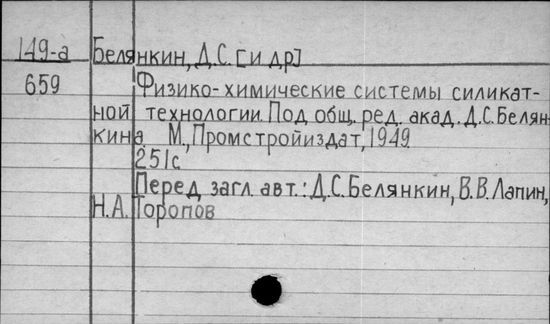 149-а Белянкин, Д.С. [и др]
659 Физико-химические системы силикат-
ной технологии. Под общ. ред. акад. Д.С. Белян-
кина М., Промстройиздат, 1949.
251с
Перед загл. авт.: Д.С. Белянкин, В.В. Лапин,
Н.А. Торопов